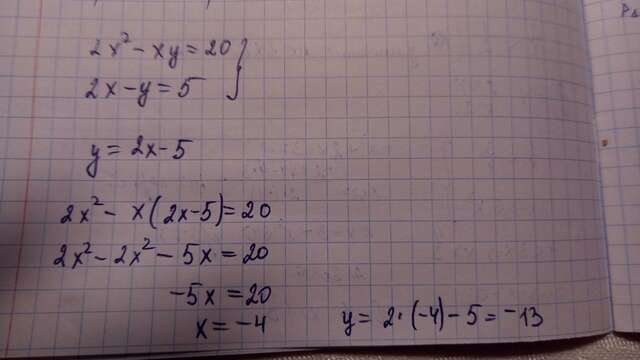 2x² - xy = 20
2x - y = 5
y = 2x - 5
2x² - x(2x-5) = 20
2x² - 2x² - 5x = 20
-5x = 20
x = -4
y = 2·(-4) - 5 = -13